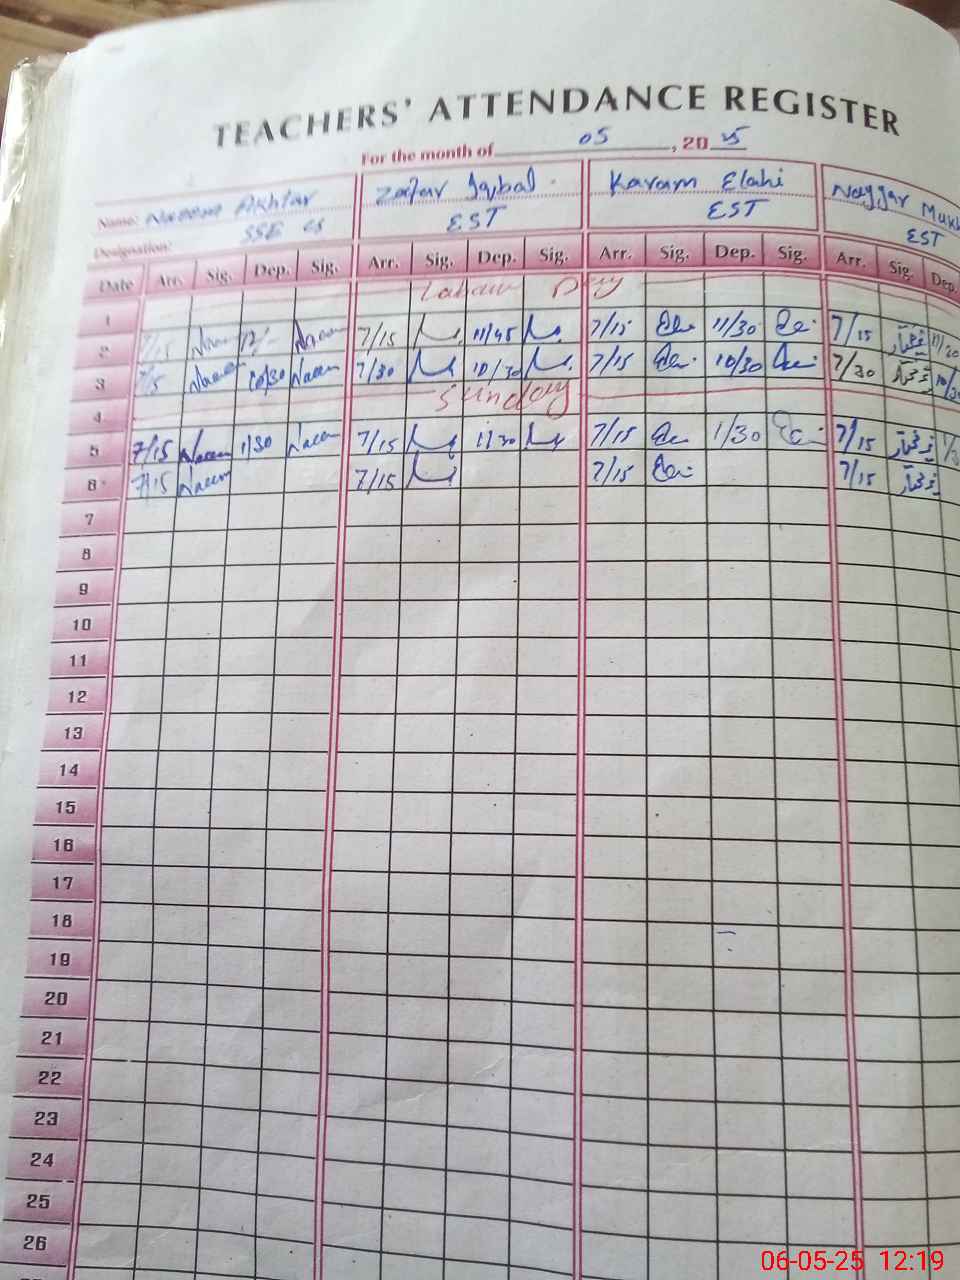 TEACHERS' ATTENDANCE REGISTER
For the month of 05, 2025
Name: Naeem Akhtar Zafar Iqbal Karam Elahi Nayyar
Designation: SSE CS EST EST EST
Date Arr. Sig. Dep. Sig. Arr. Sig. Dep. Sig. Arr. Sig. Dep. Sig. Arr. Sig. Dep.
1 Labour Day
2 7/15 Naeem 12/- Naeem 7/15 11/45 7/15 11/30 7/15 11/30
3 7/15 Naeem 10/30 Naeem 7/30 10/30 7/15 10/30 7/30 10/30
4 Sunday
5 7/15 Naeem 1/30 Naeem 7/15 1/30 7/15 1/30 7/15
6 7/15 Naeem 7/15 7/15 7/15
7
8
9
10
11
12
13
14
15
16
17
18
19
20
21
22
23
24
25
26
06-05-25 12:19